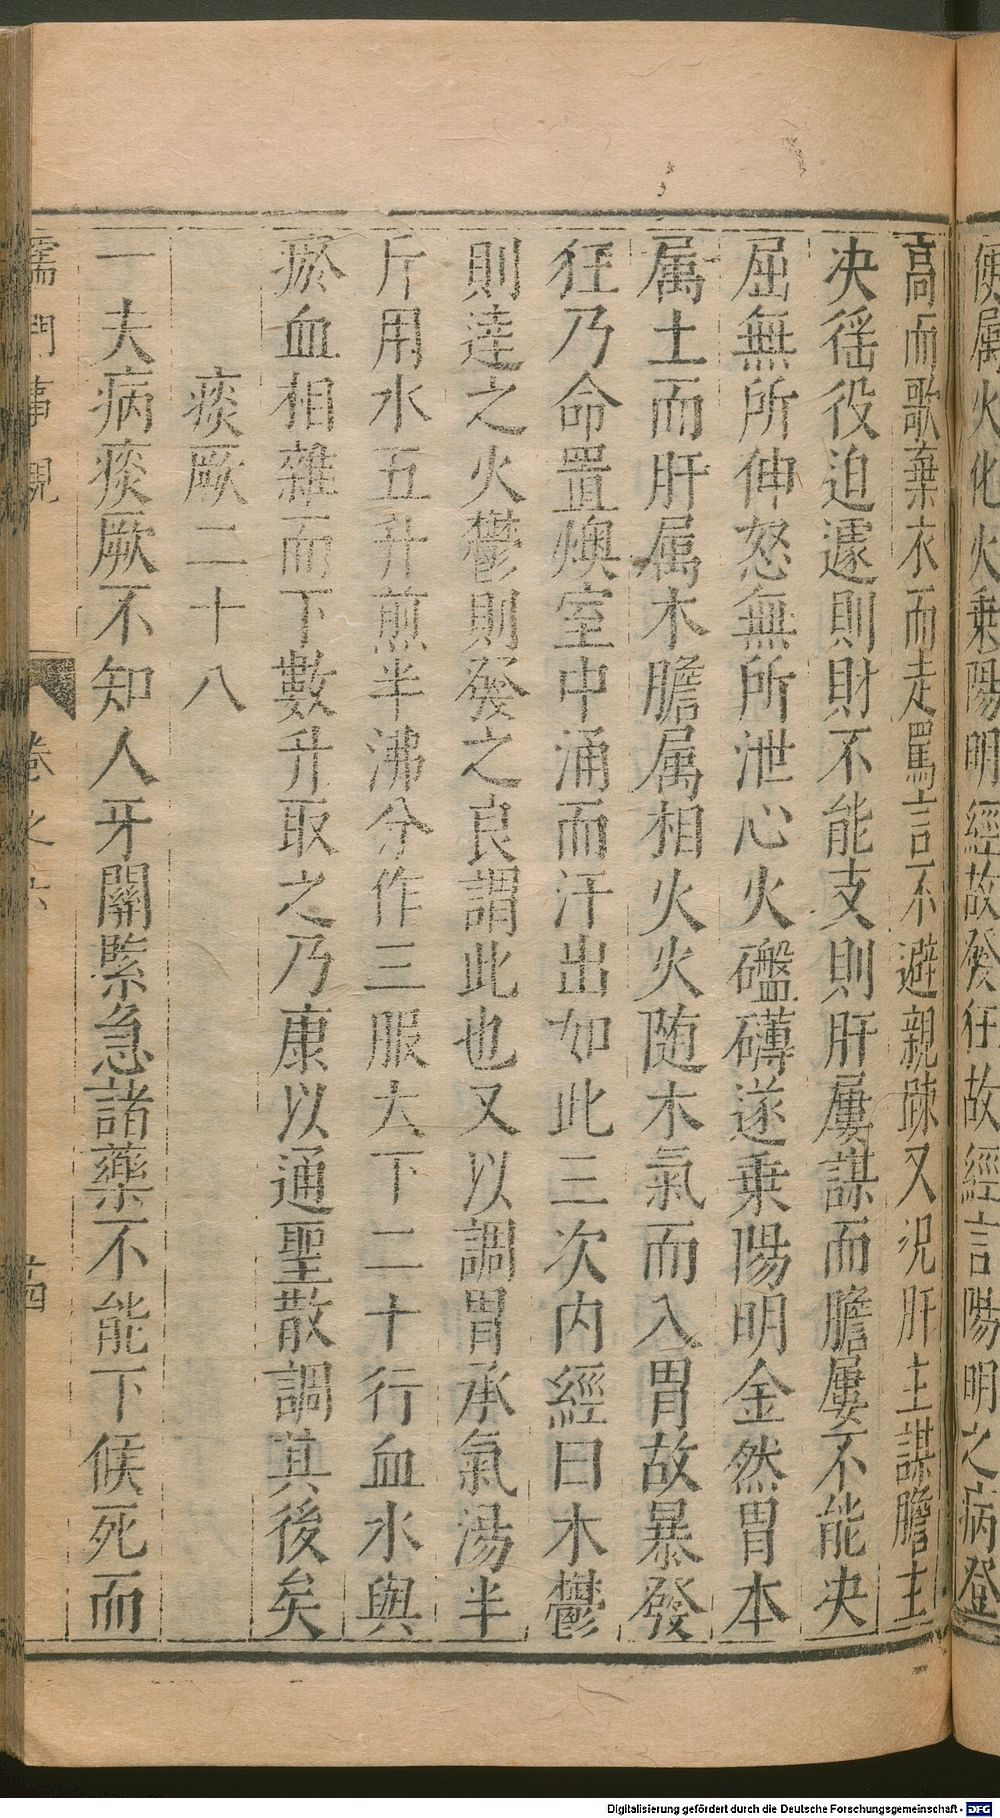 便属火化火乗陽明經故發狂故經言陽明之病登
高而歌棄衣而走罵言不避親踈又況肝主謀膽主
决徭役迫遽則財不能支則肝屢謀而膽屢不能决
屈無所伸怒無所泄心火礚礴遂乗陽明金然胃本
属土而肝属木膽属相火火随木氣而入胃故暴發
狂乃命置燠室中涌而汗出如此三次内經曰木鬱
則達之火鬱則發之良謂此也又以調胃承氣湯半
斤用水五升煎半沸分作三服大下二十行血水與
瘀血相雜而下數升取之乃康以通聖散調其後矣
痰厥二十八
一夫病痰厥不知人牙關緊急諸藥不能下候死而
儒門事親 卷之六 十四
Digitalisierung gefördert durch die Deutsche Forschungsgemeinschaft - DFG